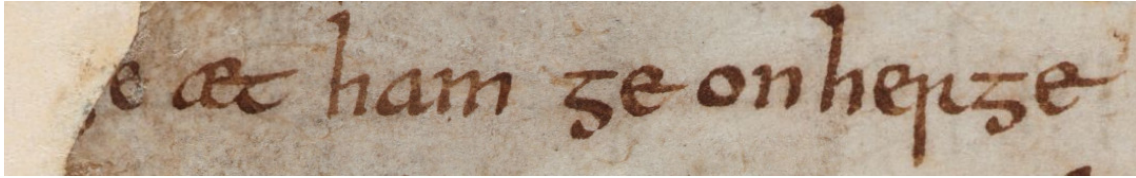 ge æt ham ge on herge